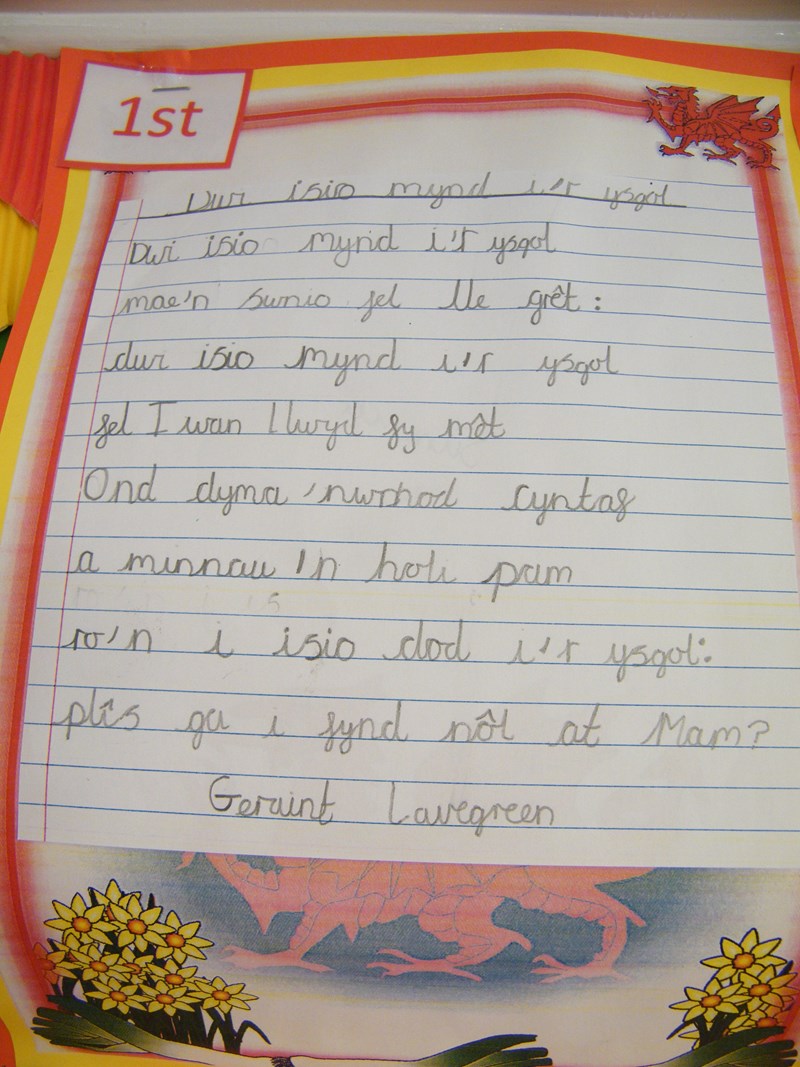 1st
Dwi isio mynd i'r ysgol
Dwi isio mynd i'r ysgol
mae'n swnio fel lle grêt:
dwi isio mynd i'r ysgol
fel Iwan Llwyd fy mêt
Ond dyma 'nwrhod cyntaf
a minnau 'n holi pam
ro'n i isio dod i'r ysgol:
plîs ga i fynd nôl at Mam?
Geraint Lovegreen